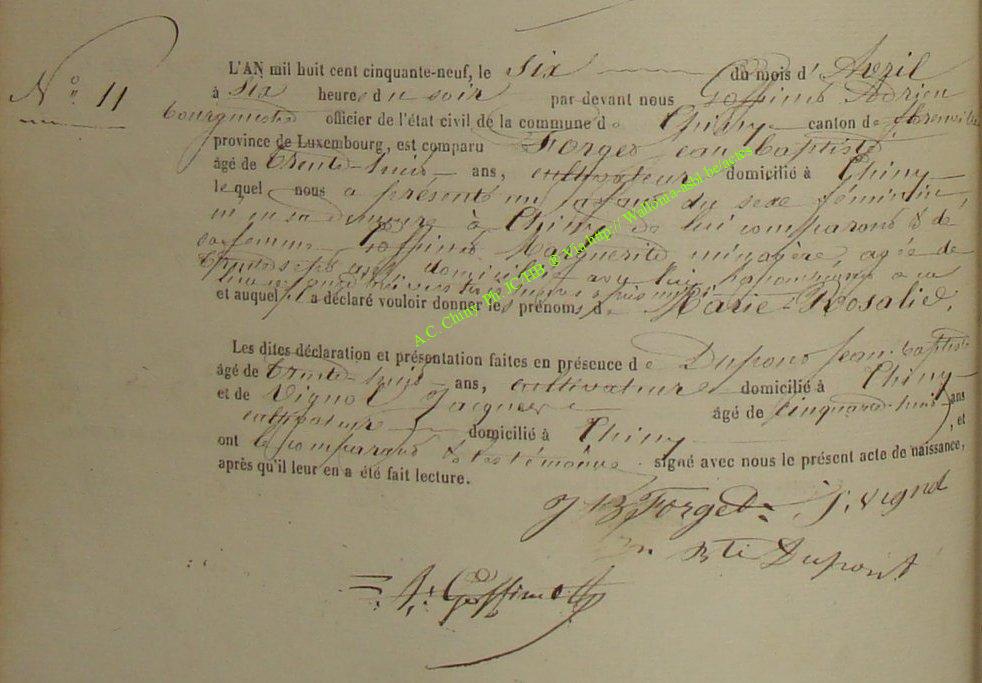 N° 11
L'AN mil huit cent cinquante-neuf, le six du mois d' Avril
à six heures du soir par-devant nous Goffinet Adrien
bourgmestre officier de l'état civil de la commune de Chiny canton de Florenville
province de Luxembourg, est comparu Forget Jean Baptiste
âgé de trente-huit ans, cultivateur domicilié à Chiny
lequel nous a présenté un enfant du sexe féminin,
né en sa demeure à Chiny de lui comparant & de
sa femme Goffinet Marguerite ménagère, agée de
trente sept ans, domiciliée avec lui
et auquel il a déclaré vouloir donner les prénoms de Marie-Rosalie.
Les dites déclaration et présentation faites en présence de Dupont Jean-baptiste
âgé de trente-huit ans, cultivateur domicilié à Chiny
et de Vignol Jacques âgé de cinquante-huit ans
cultivateur domicilié à Chiny, et
ont le comparant & les témoins signé avec nous le présent acte de naissance,
après qu'il leur en a été fait lecture.
J B Forget J. Vignol
Bte Dupont
A. Goffinet
A.C. Chiny Ph. JC/HB ® Via http:// Wallonia-asbl.be/actes